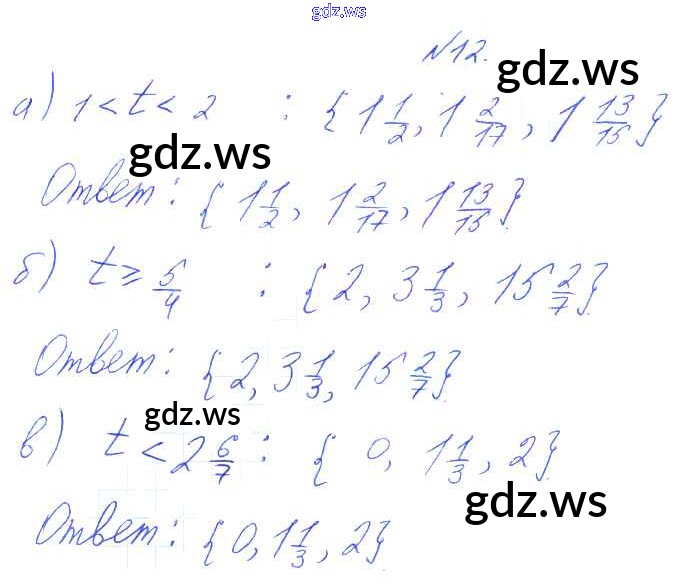 gdz.ws
N12.
gdz.ws
а) 1 < t < 2 : {1 1/2, 1 2/17, 1 13/15}
gdz.ws
Ответ: {1 1/2, 1 2/17, 1 13/15}
б) t ≥ 5/4 : {2, 3 1/3, 15 2/7}
Ответ: {2, 3 1/3, 15 2/7}
gdz.ws
в) t < 2 6/7 : {0, 1 1/3, 2}
gdz.ws
Ответ: {0, 1 1/3, 2}